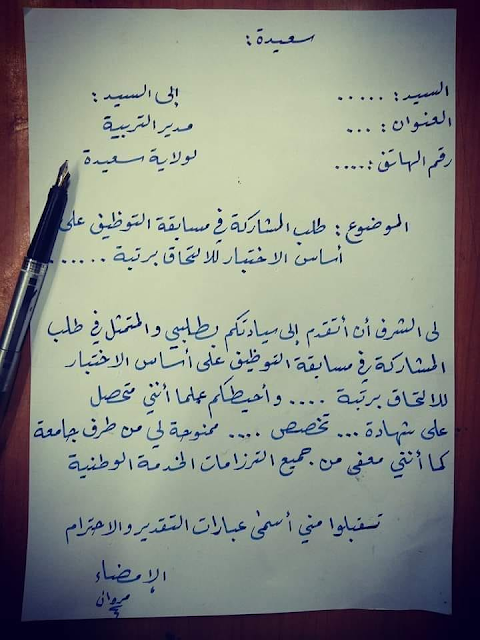 سعيدة:
السيد: ..... إلى السيد:
العنوان: ... مدير التربية
رقم الهاتف: .... لولاية سعيدة
الموضوع: طلب المشاركة في مسابقة التوظيف على
أساس الاختبار للالتحاق برتبة .......
لي الشرف أن أتقدم إلى سيادتكم بطلبي والمتمثل في طلب
المشاركة في مسابقة التوظيف على أساس الاختبار
للالتحاق برتبة .... وأحيطكم علما أنني متحصل
على شهادة ... تخصص .... ممنوحة لي من طرف جامعة
كما أنني معفى من جميع التزامات الخدمة الوطنية
تقبلوا مني أسمى عبارات التقدير والاحترام
الإمضاء
مروان